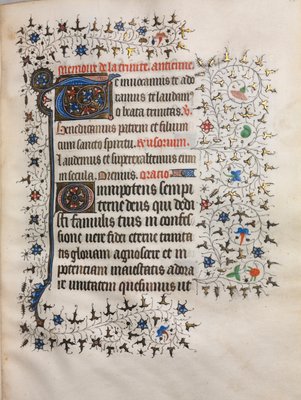 Memoire de la trinite. anteinne.
Te invocamus te ado
ramus te laudamꝰ
o beata trinitas. ꝟ.
Benedicamus patrem et filium
cum sancto spiritu. Responsorium.
Laudemus et superexaltemus eum
in secula. Oremus. Oracio.
Omnipotens sempi
terne deus qui dedi
sti famulis tuis in confes
sione vere fidei eterne trinita
tis gloriam agnoscere et in
potencia maiestatis adora
re unitatem quesumus ut